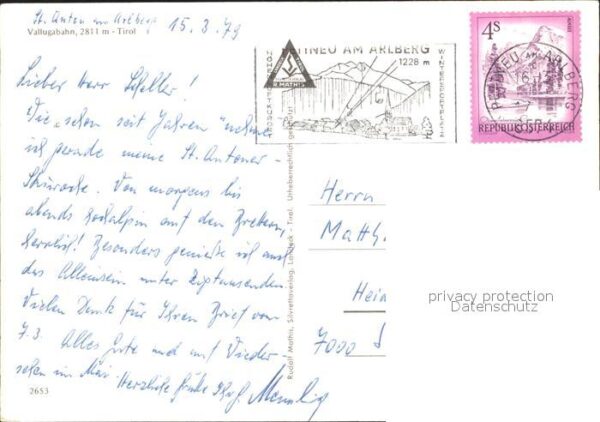 St. Anton am Arlberg 15.3.79
Vallugabahn, 2811 m - Tirol
Lieber Herr
Wie "schon seit Jahren" nehme
ich gerade meine St. Antoner-
Von morgens bis
abends auf den Brettern,
herrlich! Besonders genieße ich auch
das Alleinsein unter Zigtausenden
Vielen Dank für Ihren Brief vom
7.3. Alles Gute und auf Wieder-
sehen im Mai. Herzliche Grüße Ihr
2653
Rudolf Mathis, Silvrettaverlag, Landeck - Tirol. Urheberrechtlich geschützt
HÖHENLUFTKURORT
PETTNEU AM ARLBERG
1228 m
WINTERSPORTPLATZ
R. MATHIS
4S
REPUBLIK ÖSTERREICH
PETTNEU AM ARLBERG
6574
Herrn
Matth.
Hein
7000
privacy protection
Datenschutz